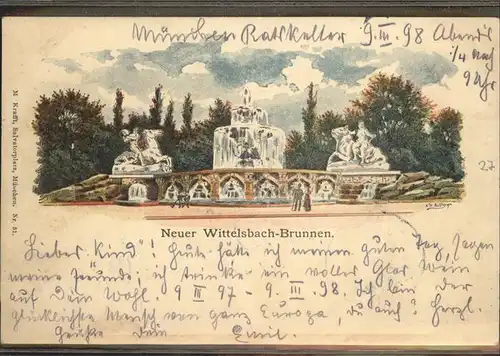 München Ratskeller 9. III 98 Abends
1/4 nach
9 Uhr
M Krafft, Salvatorplatz, München. Nr. 51.
27
Neuer Wittelsbach-Brunnen.
Liebes Kind! Heute hätte ich meinen guten Tag, sagen
meine Freunde, ich trinke ein volles Glas Wein
auf Dein Wohl. 9 III 97 – 9 III. 98. Ich bin der
glücklichste Mensch von ganz Europa, du auch? Herzl.
Grüsse Dein Emil.